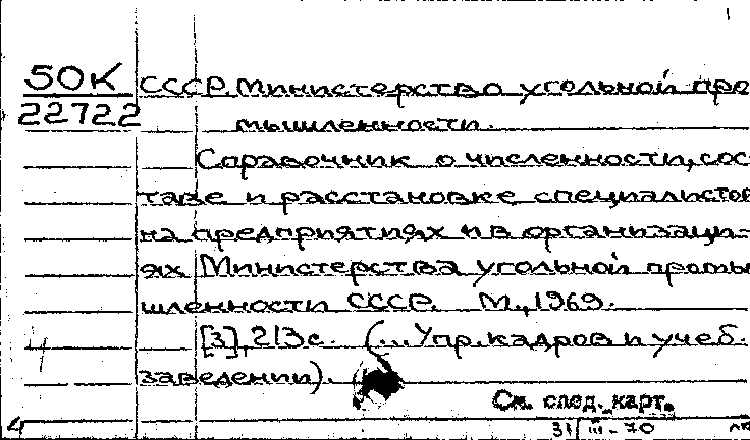 50К
22722
СССР. Министерство угольной про
мышленности.
Справочник о численности, сос
таве и расстановке специалистов
на предприятиях и в организаци-
ях Министерства угольной промы
шленности СССР. М., 1969.
[3], 213 с. (... Упр. кадров и учеб.
заведении).
См. след. карт.
4
31/III-70